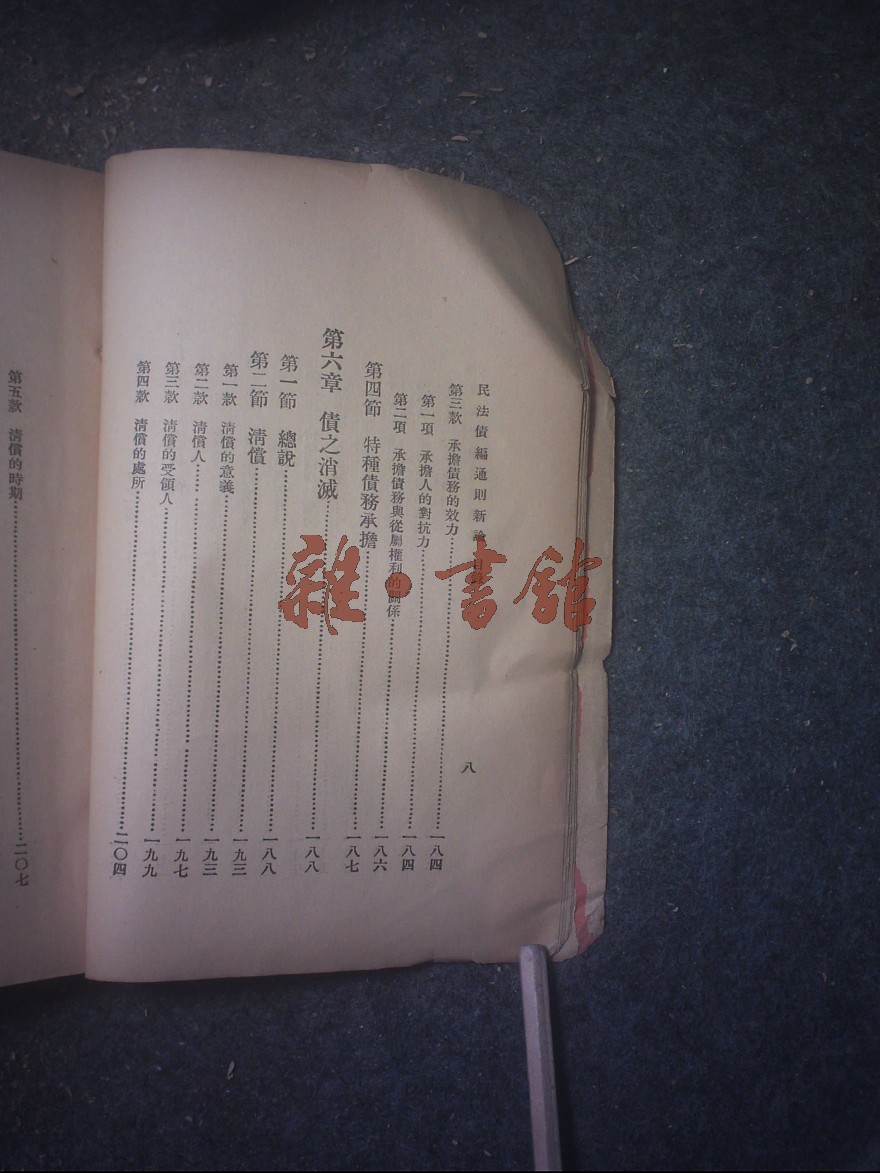 民法債編通則新論 目錄
八
第三款 承擔債務的效力……一八四
第一項 承擔人的對抗力……一八四
第二項 承擔債務與從屬權利的關係……一八六
第四節 特種債務承擔……一八七
第六章 債之消滅……一八八
第一節 總說……一八八
第二節 淸償……一九三
第一款 淸償的意義……一九三
第二款 淸償人……一九七
第三款 淸償的受領人……一九九
第四款 淸償的處所……二〇四
第五款 淸償的時期……二〇七
雜·書館